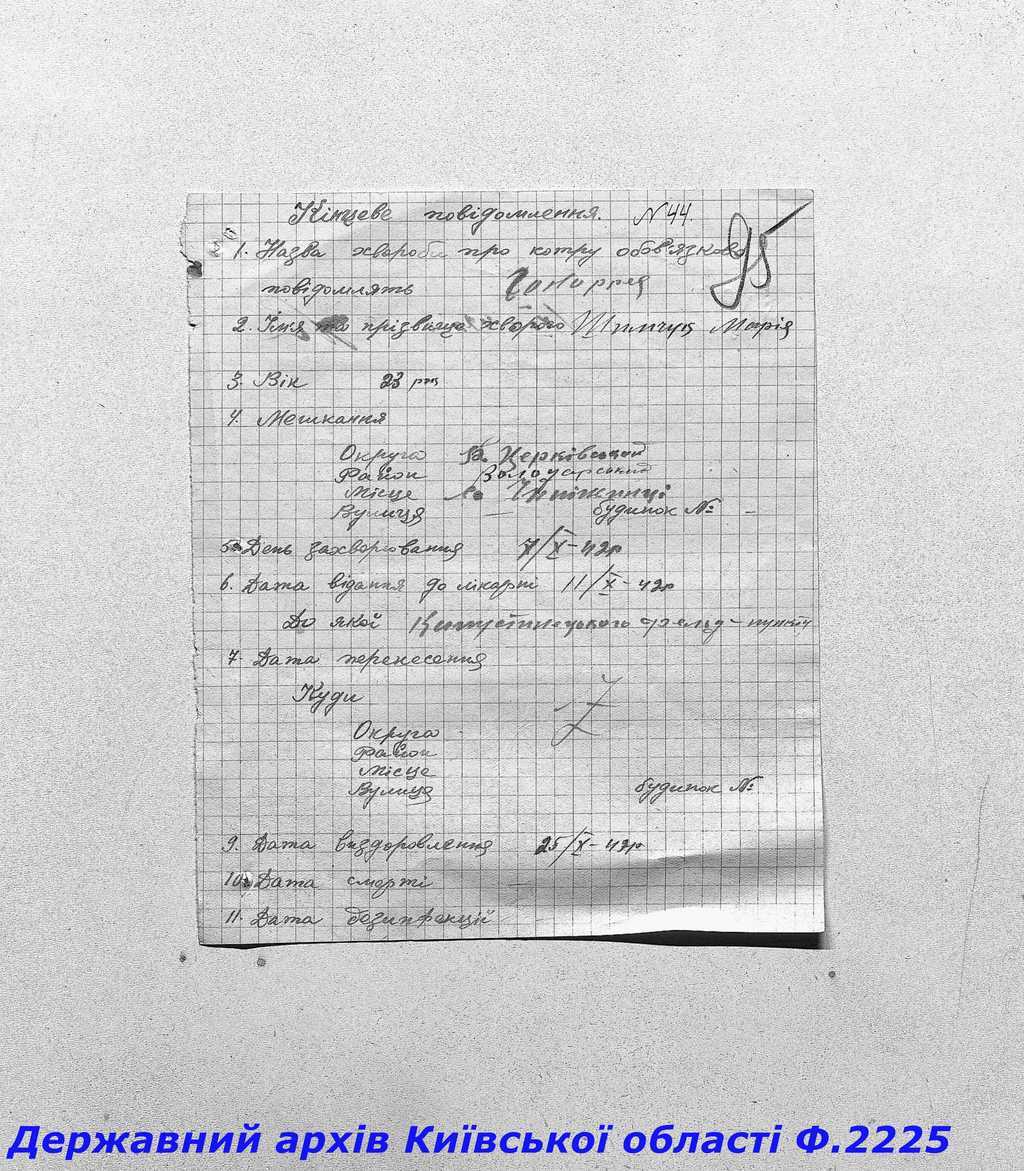 Кінцеве повідомлення. N 44.
95
1. Назва хвороби про котру обов'язково
повідомлять Гонорея
2. Ім'я та прізвище хворого Марія
3. Вік 23 р.
4. Мешкання
Округа Б. Церківський
Район Володарський
Місце с.
Вулиця — будинок №: –
5. День захворювання 7/X–42р
6. Дата відання до лікарні 11/X–42р
До якої фельд–пункту
7. Дата перенесення
Куди
Округа
Район
Місце
Вулиця будинок №:
9. Дата виздоровлення 25/X–42р
10. Дата смерті —
11. Дата дезинфекцій
Державний архів Київської області Ф.2225